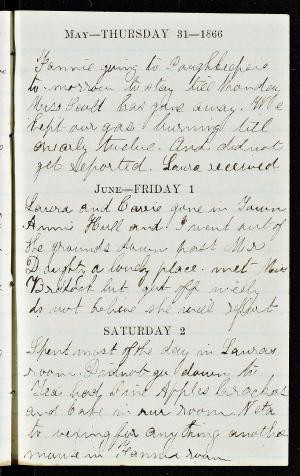 May—THURSDAY 31—1866
Fannie going to Poughkeepsie
to-morrow to stay till Monday
Miss Scott has gone away. We
kept our gas burning till
nearly twelve. And did not
get reported. Laura received
June—FRIDAY 1
Laura and Carrie gone in Town
Annie Hull and I went out of
the grounds down past Mr
a lovely place. met Miss
Braddock but got off nicely
do not believe she will report
SATURDAY 2
Spent most of the day in Lauras
room. Did not go down to
Tea had Pine Apples Crackers
and Cake in our room. Neta
to vexing for any thing another
mouse in Fannies room